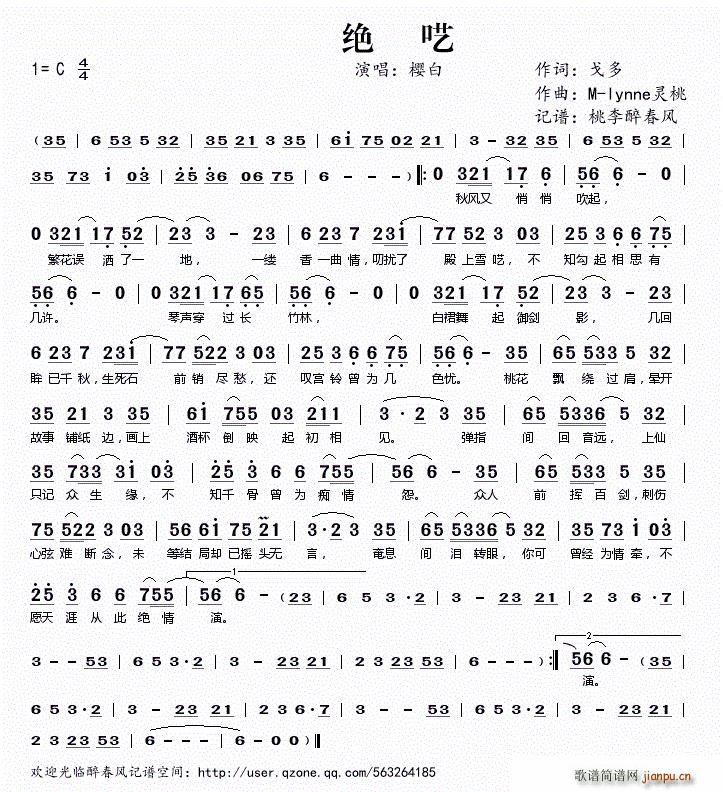 绝 呓
1=C 4/4 演唱：樱白 作词：戈多
作曲：M-lynne灵桃
记谱：桃李醉春风
(35 | 6 53 5 32 | 35 21 3 35 | 6i 75 02 21 | 3 - 32 35 | 6 53 5 32 |
35 73 i 03 | 25 36 06 75 | 6 - - - ) ‖: 0 321 17 6 | 56 6 - 0 |
秋风又 悄悄 吹起，
0 321 17 52 | 23 3 - 23 | 6 23 7 231 | 77 52 3 03 | 25 3 6 6 75 |
繁花误 洒了一 地， 一缕 香一曲情，叨扰了 殿上雪呓，不 知勾起相思有
56 6 - 0 | 0 321 17 65 | 56 6 - 0 | 0 321 17 52 | 23 3 - 23 |
几许。 琴声穿 过长 竹林， 白裙舞 起御剑 影， 几回
6 23 7 231 | 77 522 3 03 | 25 3 6 6 75 | 56 6 - 35 | 65 533 5 32 |
眸已千秋，生死石 前销尽愁，还 叹宫铃曾为几 色忧。 桃花 飘绕过肩，晕开
35 21 3 35 | 6i 755 03 211 | 3 · 2 3 35 | 65 5336 5 32 |
故事铺纸边，画上 酒杯倒映起初相 见。 弹指 间回音远，上仙
35 733 3i 03 | 25 3 6 6 755 | 56 6 - 35 | 65 533 5 35 |
只记众生缘，不 知千骨曾为痴情 怨。 众人 前挥百剑，刺伤
75 522 3 03 | 56 6i 75 21 | 3 · 2 3 35 | 65 5336 5 32 | 35 73 i 03 |
心弦难断念，未 等结局却已摇头无 言， 奄息 间泪转眼，你可 曾经为情牵，不
1
25 3 6 6 755 | 56 6 - (23 | 6 5 3 · 2 | 3 - 23 21 | 2 3 6 · 7 |
愿天涯从此绝情 演。
2
3 - - 53 | 6 5 3 · 2 | 3 - 23 21 | 2 23 23 53 | 6 - - - ) :‖ 56 6 - (35 |
演。
6 5 3 · 2 | 3 - 23 21 | 2 3 6 · 7 | 3 - - 53 | 6 5 3 · 2 | 3 - 23 21 |
2 3 23 53 | 6 - - - | 6 - 0 0 )‖
欢迎光临醉春风记谱空间：http://user.qzone.qq.com/563264185
歌谱简谱网
jianpu.cn